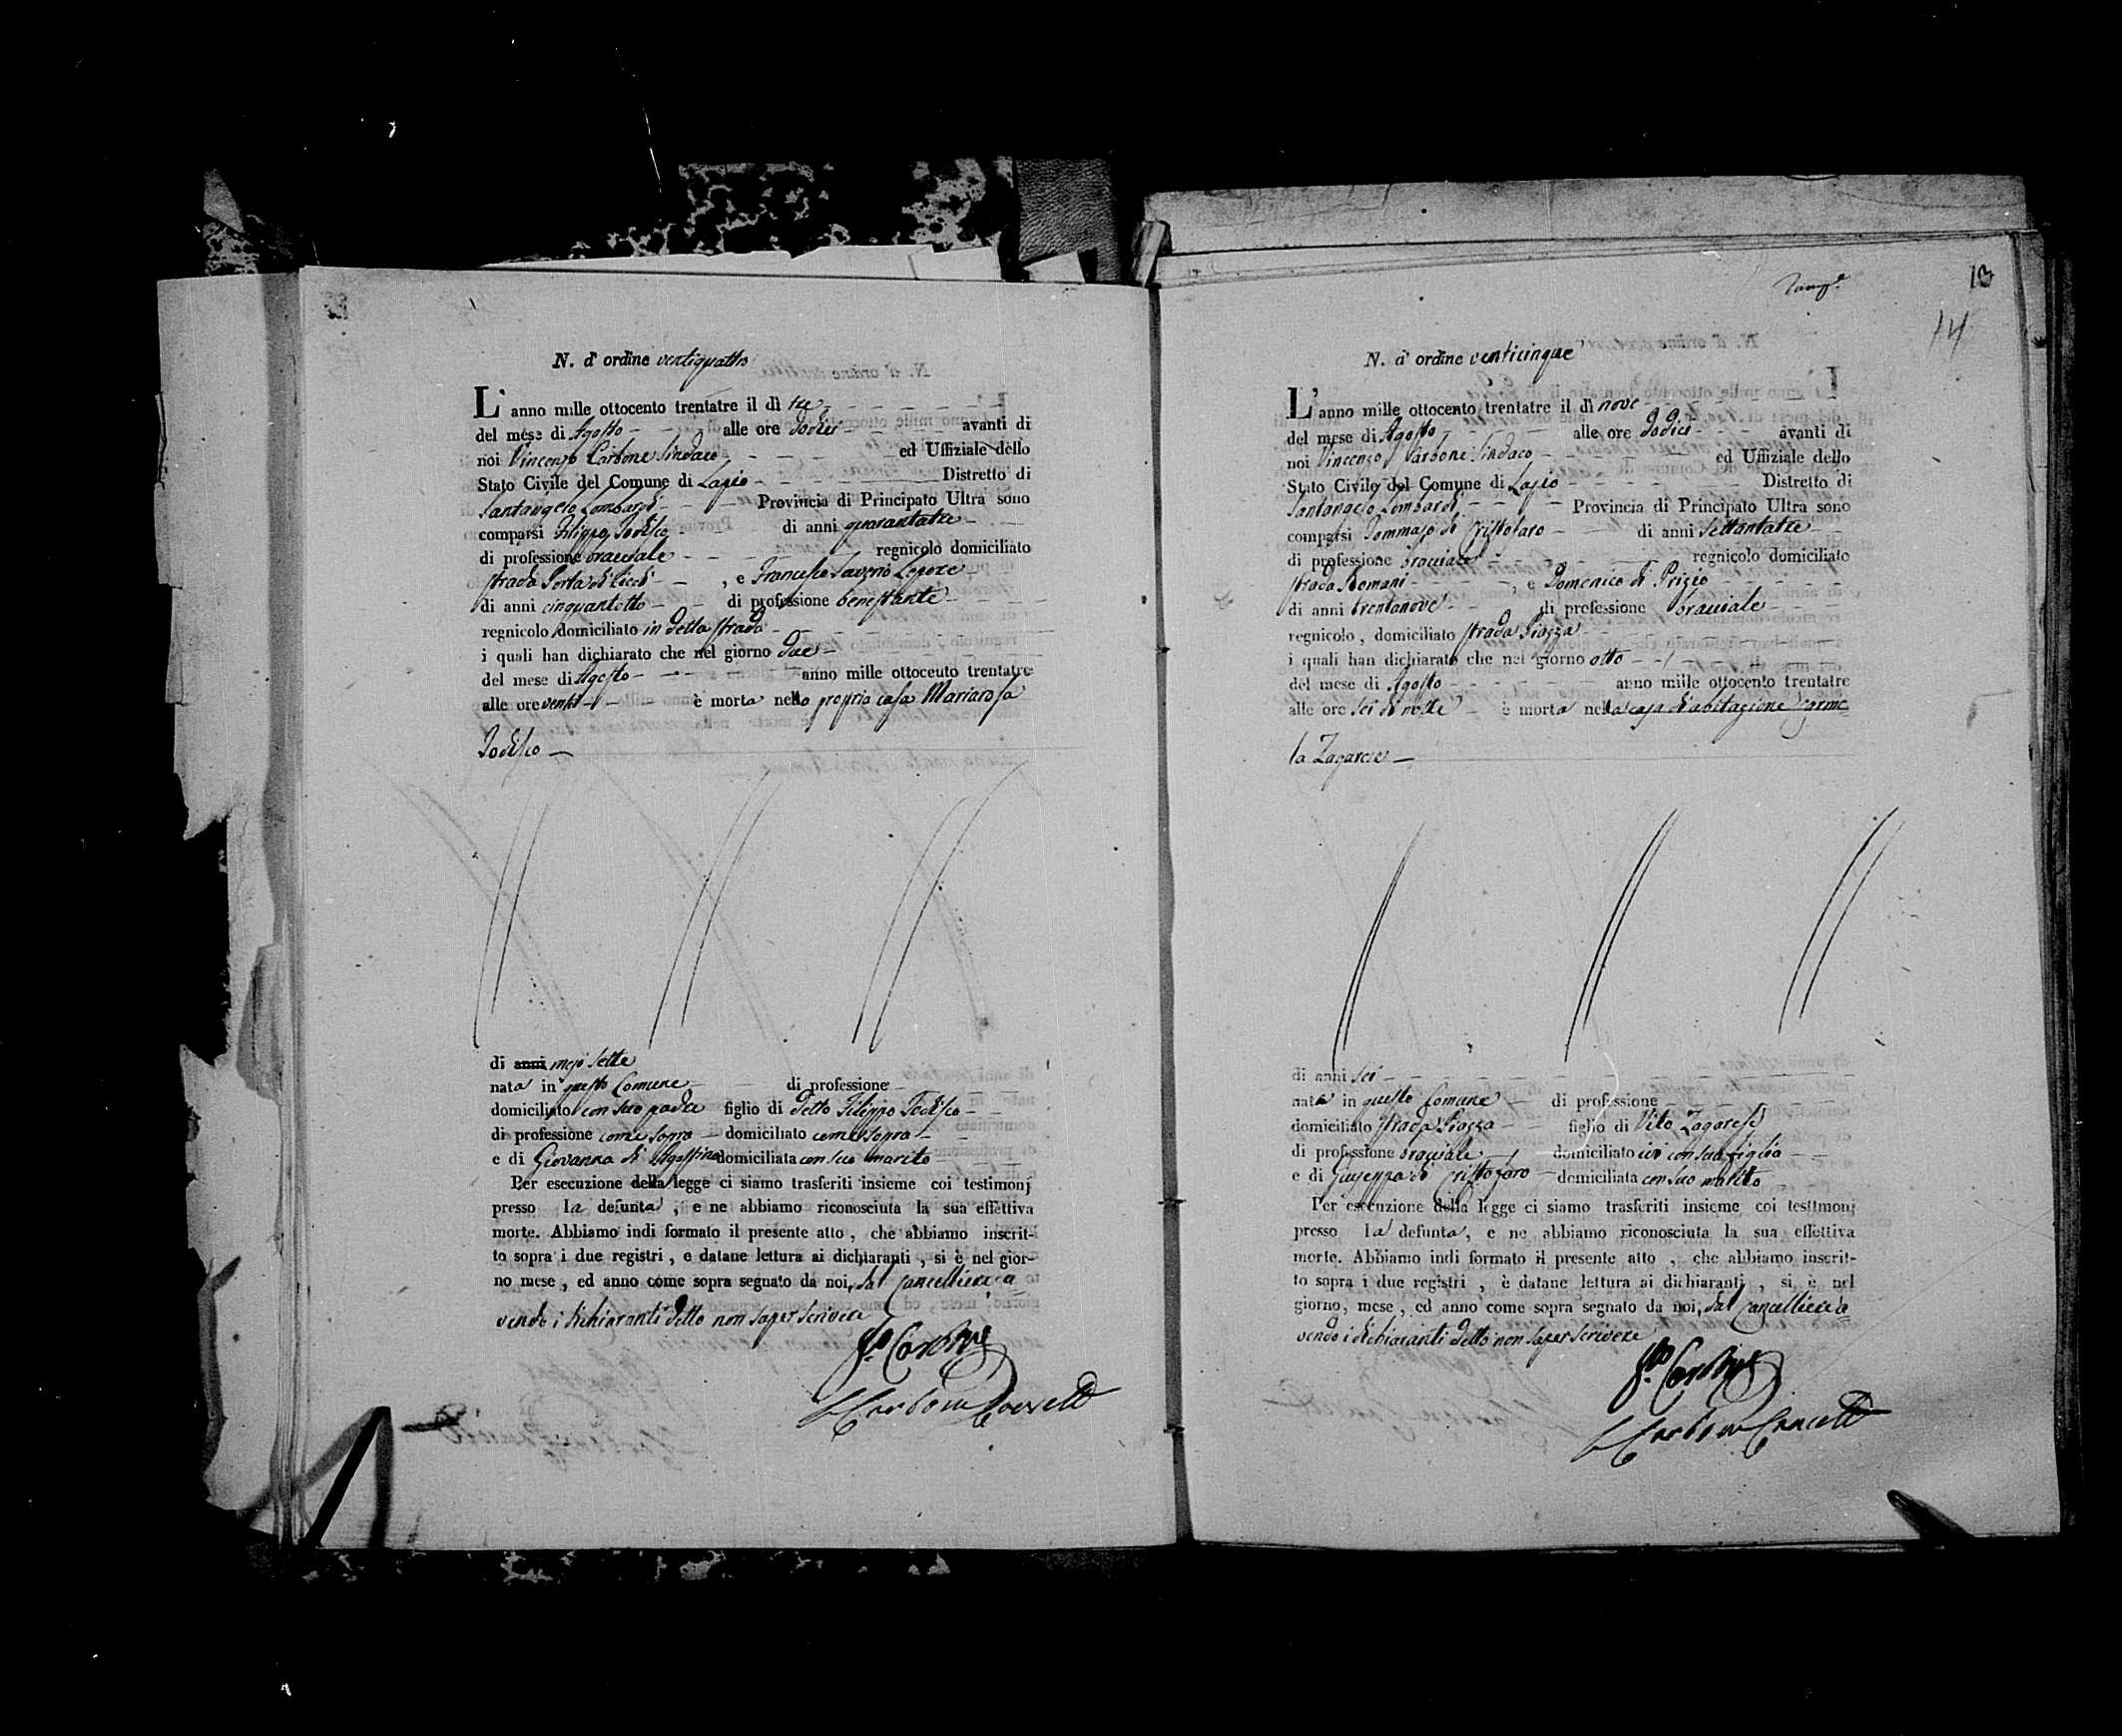 N. d' ordine ventiquattro
L' anno mille ottocento trentatre il dì tre
del mese di Agosto alle ore dodici avanti di
noi Vincenzo Carbone Sindaco ed Uffiziale dello
Stato Civile del Comune di Lapio Distretto di
Santangelo Lombardi Provincia di Principato Ultra sono
comparsi Filippo Iodisco di anni quarantatre
di professione bracciale regnicolo domiciliato
strada Porta di , e Francesco Saverio Lepore
di anni cinquantotto di professione benestante
regnicolo domiciliato in detta strada
i quali han dichiarato che nel giorno due
del mese di Agosto anno mille ottocento trentatre
alle ore venti è morta nella propria casa Mariarosa
Iodisco
di anni mesi sette
nata in questo Comune di professione
domiciliato con suo padre figlio di detto Filippo Iodisco
di professione come sopra domiciliato come sopra
e di Giovanna di Agostino domiciliata con suo marito
Per esecuzione della legge ci siamo trasferiti insieme coi testimonj
presso la defunta , e ne abbiamo riconosciuta la sua effettiva
morte. Abbiamo indi formato il presente atto , che abbiamo inscrit-
to sopra i due registri , e datane lettura ai dichiaranti , si è nel gior-
no mese , ed anno come sopra segnato da noi, dal Cancelliere a
vendo i dichiaranti detto non saper scrivere
Carbone
Carbone Cancell
13
14
N. d' ordine venticinque
L' anno mille ottocento trentatre il dì nove
del mese di Agosto alle ore dodici avanti di
noi Vincenzo Carbone Sindaco ed Uffiziale dello
Stato Civile del Comune di Lapio Distretto di
Santangelo Lombardi Provincia di Principato Ultra sono
comparsi Tommaso di Cristofaro di anni settantatre
di professione bracciale regnicolo domiciliato
strada Romani , e Domenico di Prizio
di anni trentanove di professione bracciale
regnicolo , domiciliato strada Piazza
i quali han dichiarato che nel giorno otto
del mese di Agosto anno mille ottocento trentatre
alle ore sei di notte è morta nella casa di abitazione Carme
la Zagarese
di anni sei
nata in questo Comune di professione
domiciliato strada Piazza figlio di Vito Zagarese
di professione bracciale domiciliato ivi con sua figlia
e di Giuseppa di Cristofaro domiciliata con suo marito
Per esecuzione della legge ci siamo trasferiti insieme coi testimonj
presso la defunta , e ne abbiamo riconosciuta la sua effettiva
morte. Abbiamo indi formato il presente atto , che abbiamo inscrit-
to sopra i due registri , è datane lettura ai dichiaranti , si è nel
giorno, mese , ed anno come sopra segnato da noi, dal Cancelliere a
vendo i dichiaranti detto non saper scrivere
Carbone
Carbone Cancell